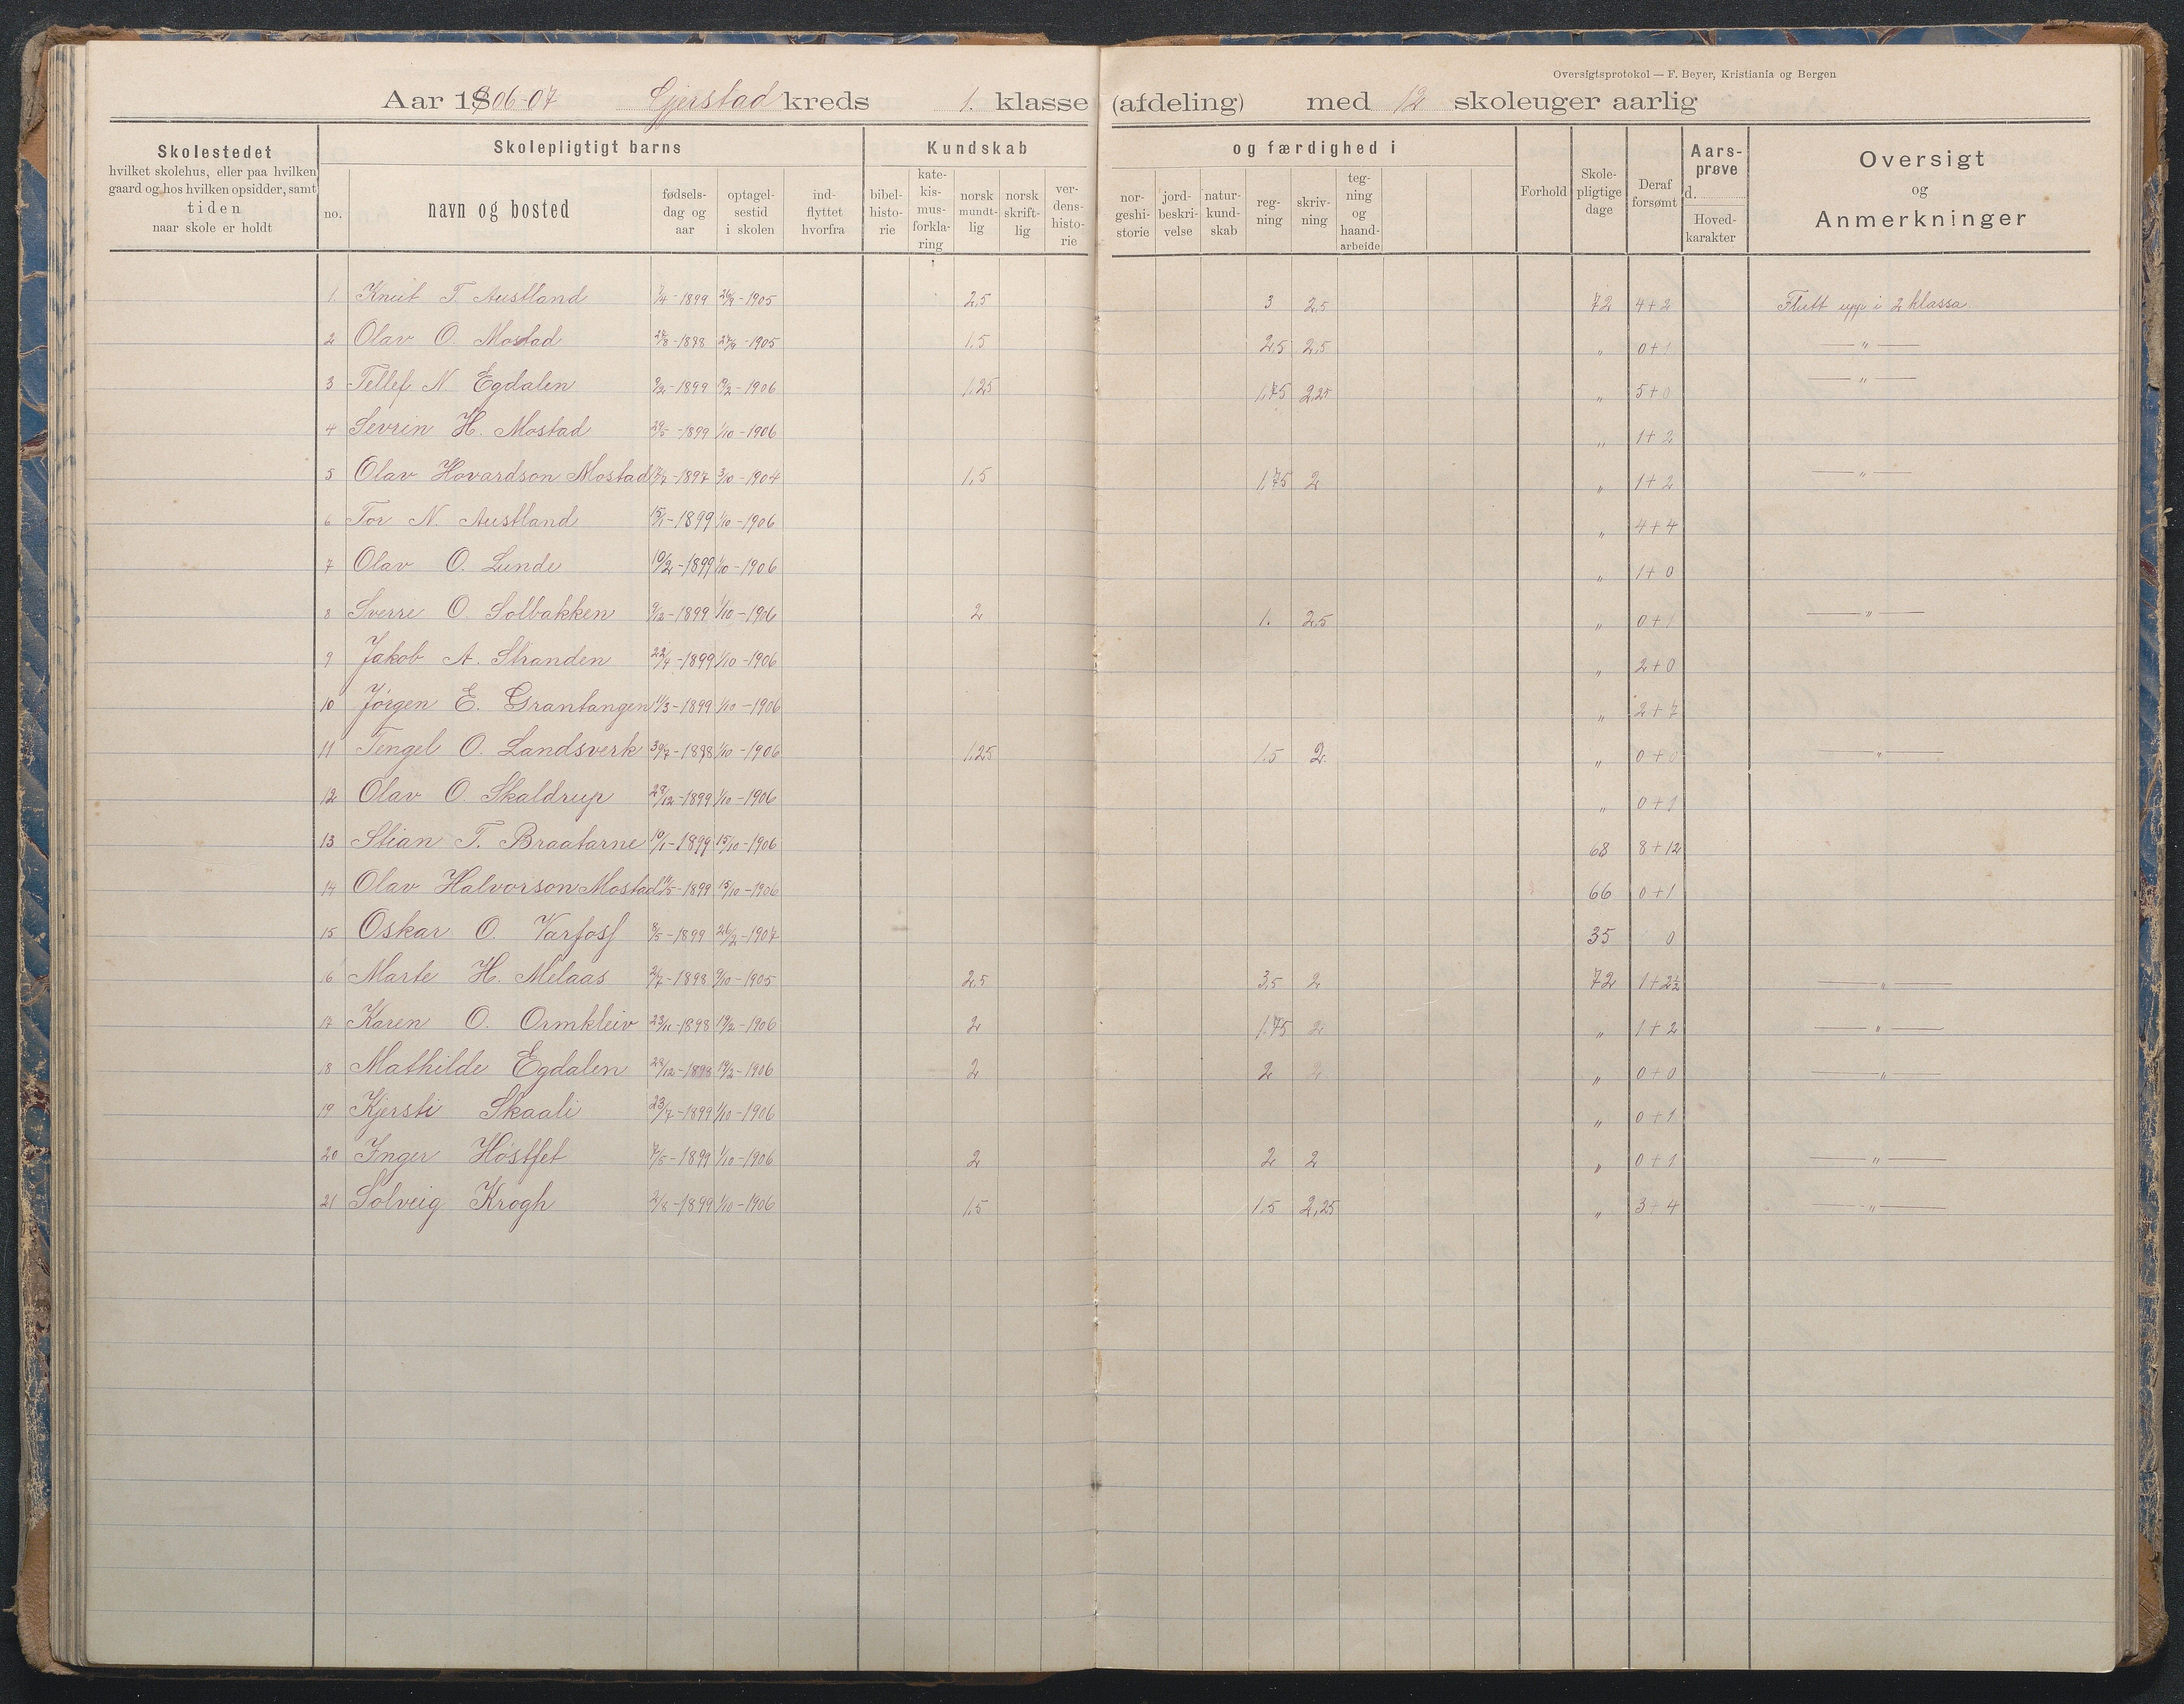 Oversigtsprotokol — F. Beyer, Kristiania og Bergen
Aar 1906-07 Gjerstad kreds 1. klasse (afdeling) med 12 skoleuger aarlig
Skolestedet
hvilket skolehus, eller paa hvilken
gaard og hos hvilken opsidder, samt
tiden
naar skole er holdt
Skolepligtigt barns
no.
navn og bosted
fødsels-
dag og
aar
optagel-
sestid
i skolen
ind-
flyttet
hvorfra
Kundskab
bibel-
histo-
rie
kate-
kis-
mus-
forkla-
ring
norsk
mundt-
lig
norsk
skrift-
lig
ver-
dens-
histo-
rie
og færdighed i
nor-
geshi-
storie
jord-
beskri-
velse
natur-
kund-
skab
reg-
ning
skriv-
ning
teg-
ning
og
haand-
arbeide
Forhold
Skole-
pligtige
dage
Deraf
forsømt
Aars-
prøve
d.
Hoved-
karakter
Oversigt
og
Anmerkninger
1. Knut T. Austland 7/4-1899 26/9-1905 2,5 3 2,5 72 4+2 Flutt upp i 2 klassa.
2 Olav O. Mostad -1898 -1905 1,5 2,5 2,5 " 0+1 — " —
3 Tellef N. Egdalen 9/2-1899 19/2-1906 1,25 1,75 2,25 " 5+0 — " —
4 Sevrin H. Mostad 29/5-1899 1/10-1906 " 1+2
5 Olav Hovardson Mostad 17/7-1897 3/10-1904 1,5 1,75 2 " 1+2 — " —
6 Tor N. Austland 15/1-1899 1/10-1906 " 4+4
7 Olav O. Lunde 10/2-1899 1/10-1906 " 1+0
8 Sverre O. Solbakken 9/12-1899 1/10-1906 2 1. 2,5 " 0+1 — " —
9 Jakob A. Stranden 22/4-1899 1/10-1906 " 2+0
10 Jørgen E. Grantangen 11/3-1899 1/10-1906 " 2+7
11 Tengel O. Landsverk 30/7-1898 1/10-1906 1,25 1,5 2. " 0+0 — " —
12 Olav O. Skaldrup 28/12-1899 1/10-1906 " 0+1
13 Stian T. Braatarne 10/1-1899 15/10-1906 68 8+12
14 Olav Halvorson Mostad 11/5-1899 15/10-1906 66 0+1
15 Oskar O. Varfoss 8/5-1899 26/2-1907 35 0
16 Marte H. Melaas 2/7-1898 9/10-1905 2,5 3,5 2 72 1+2½ — " —
17 Karen O. Ormkleiv 23/11-1898 19/2-1906 2 1,75 2 " 1+2 — " —
18 Mathilde Egdalen 28/12-1898 19/2-1906 2 2 2 " 0+0 — " —
19 Kjersti Skaali 23/7-1899 1/10-1906 " 0+1
20 Inger Høstfet 7/5-1899 1/10-1906 2 2 2 " 0+1 — " —
21 Solveig Krogh 2/8-1899 1/10-1906 1,5 1,5 2,25 " 3+4 — " —